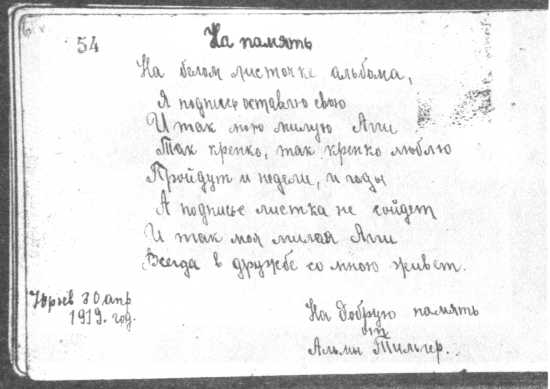 54
На память
На белом листочке альбома,
Я подпись оставлю свою
И так мою милую Агги
Так крепко, так крепко люблю
Пройдут и недели, и годы
А подпись с листка не сойдет
И так моя милая Агги
Всегда в дружбе со мною живет.
Юрьев 30 апр
1919. год.
На добрую память
от
Альмы